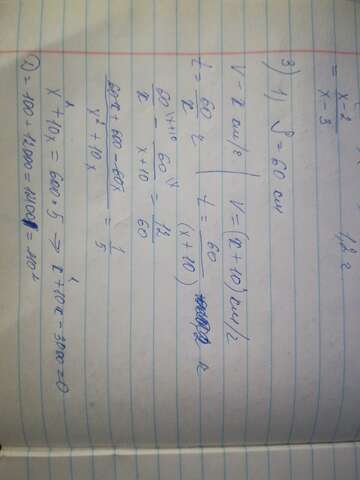 = x-2 / x-3
3) 1) S = 60 км 1,2 ч
V - x км/ч | V = (x + 10) км/ч
t = 60/x ч | t = 60/(x+10) ч
60/x - 60/(x+10) = 12/60
(60x + 600 - 60x)/(x² + 10x) = 1/5
x² + 10x = 600 · 5 ⇒ x² + 10x - 3000 = 0
D = 100 + 12000 = 12100 = 110²